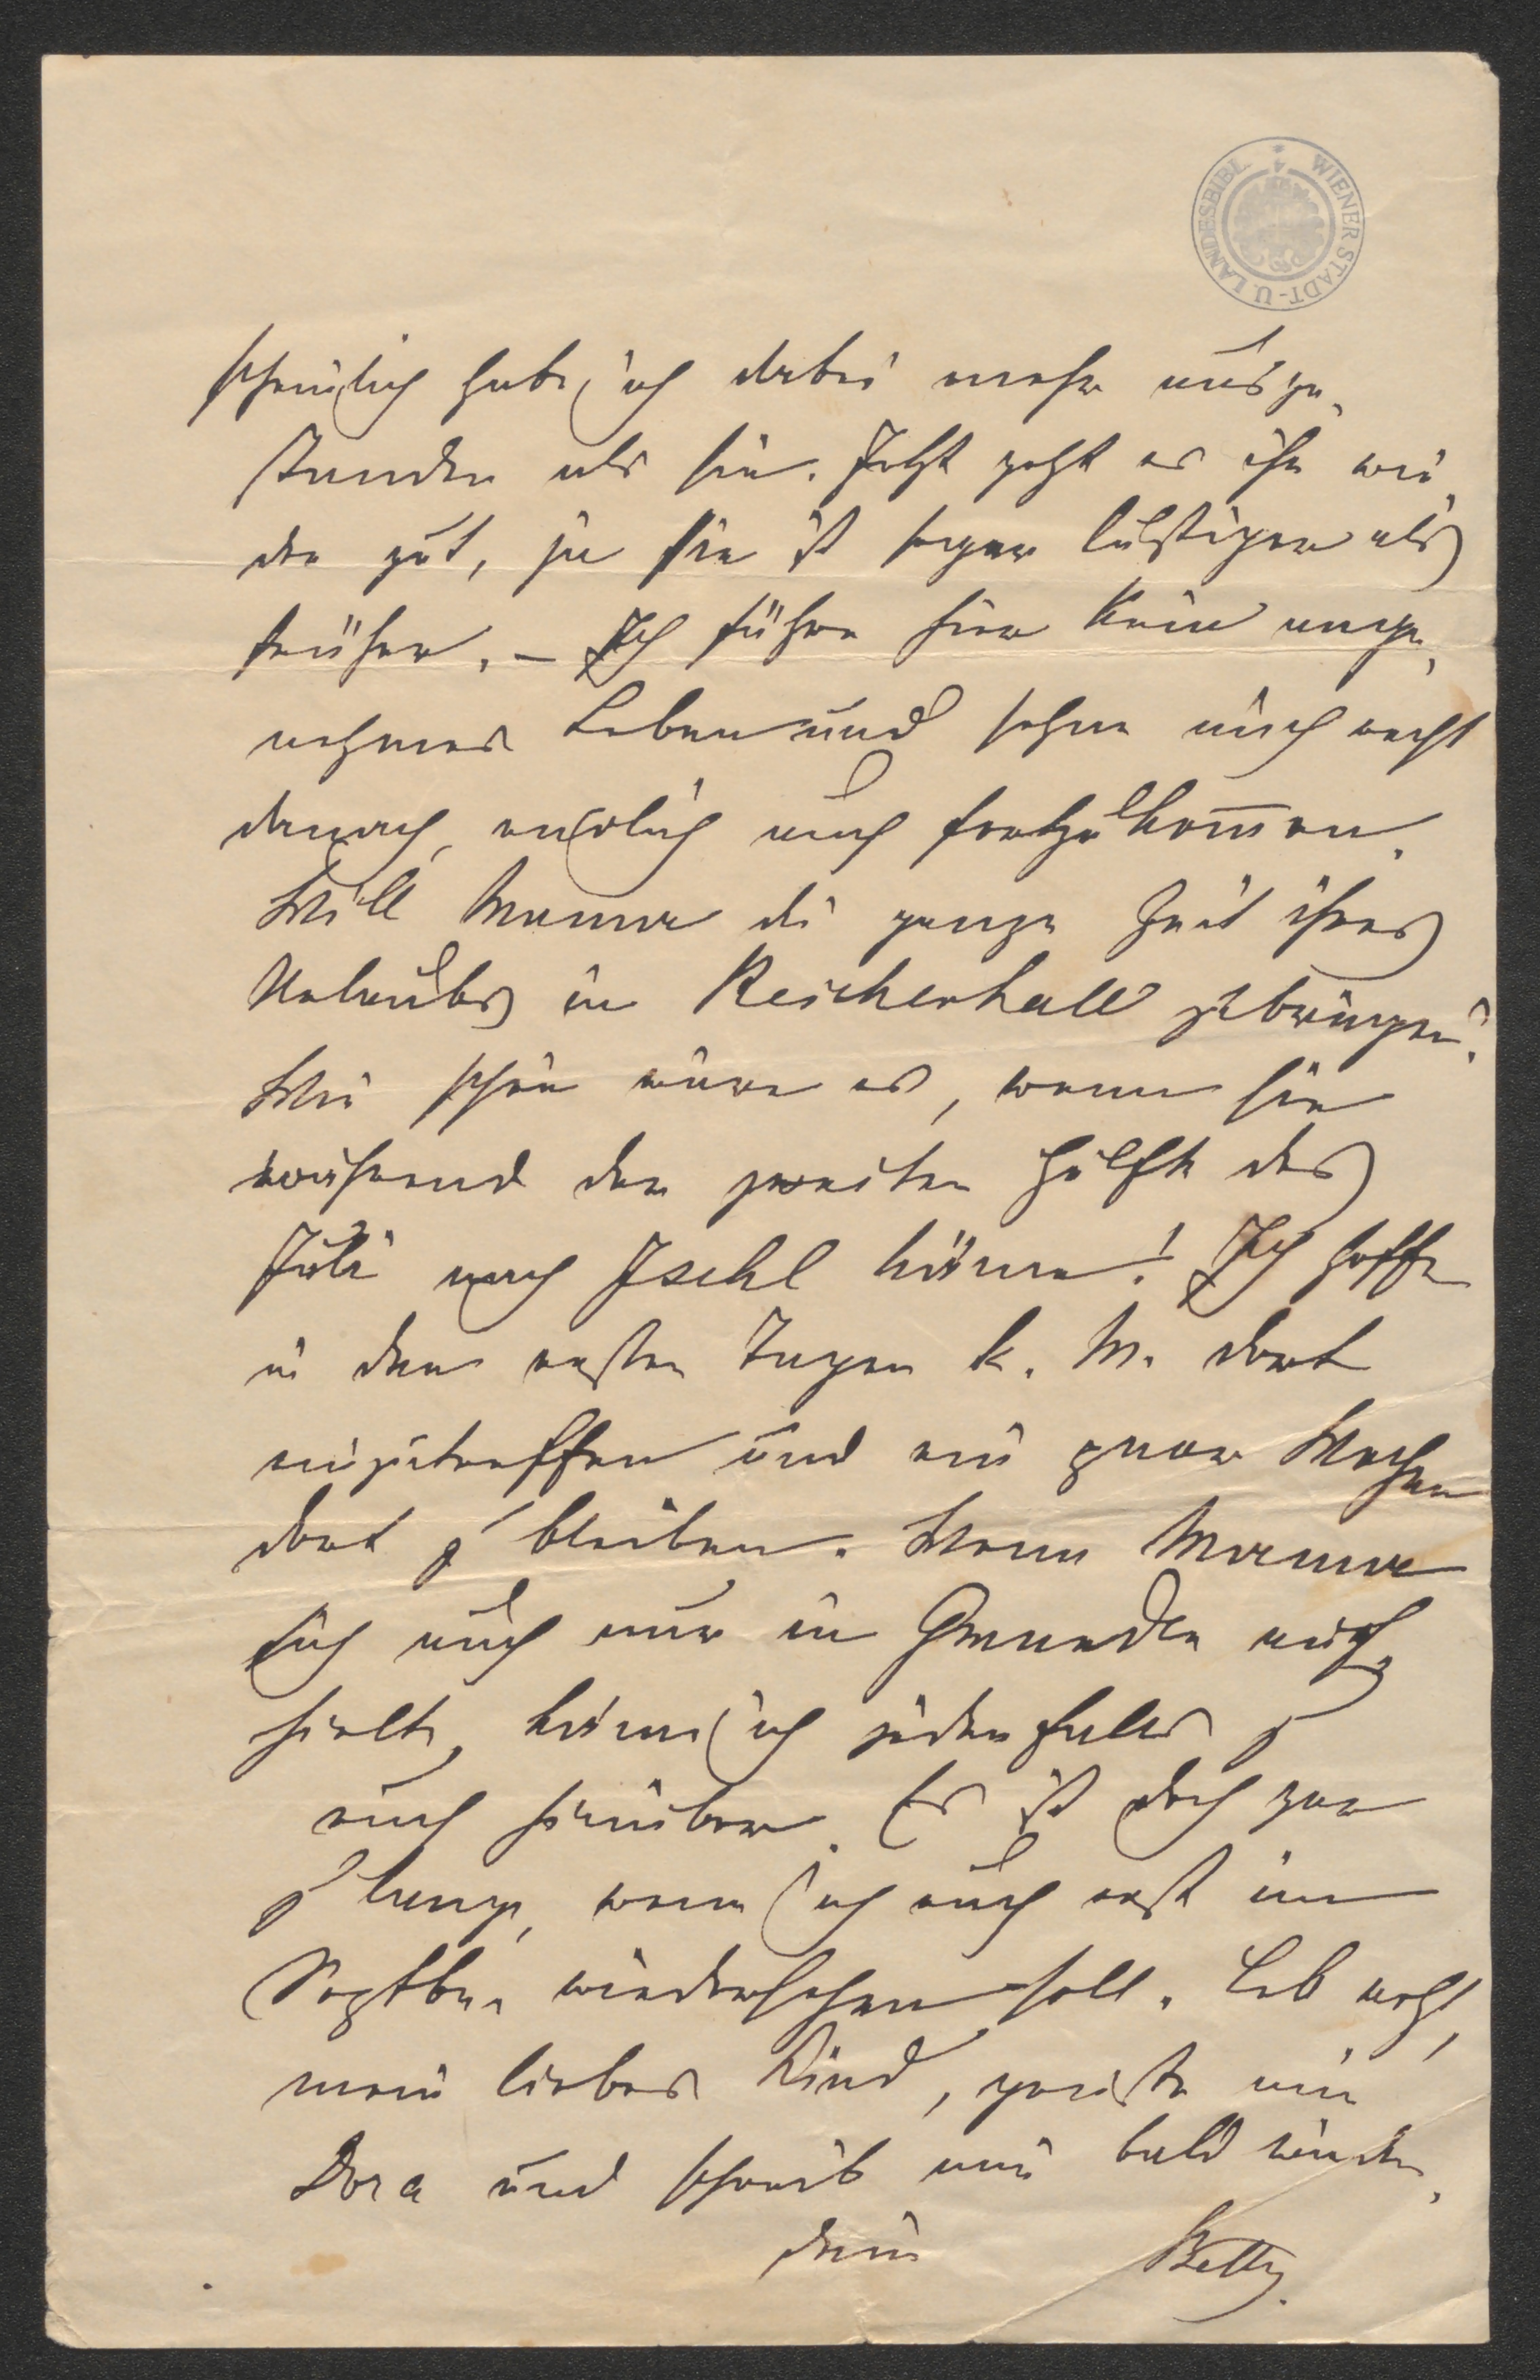 WIENER STADT-U. LANDESBIBL.
scheinlich habe ich dabei mehr ausge-
standen als sie. Jetzt geht es ihr wie-
der gut, ja sie ist sogar lustiger als
früher. – Ich führe hier kein ange-
nehmes Leben und sehne mich recht
danach, endlich auch fortzukom̅en.
Will Mama die ganze Zeit ihres
Urlaubs in Reichenhall zubringen?
Wie schön wäre es, wenn sie
während der zweiten Hälfte des
Juli nach Ischl käme! Ich hoffe
in den ersten Tagen k. M. dort
einzutreffen und ein paar Wochen
dort zu bleiben. Wenn Mama
sich auch nur in Gmunden auf-
hielte, käme ich jedenfalls zu
euch hinüber. Es ist doch gar
zu lange, wenn ich euch erst im
Septbr. wiedersehen soll. Leb wohl,
mein liebes Kind, grüße mir
Dora und schreib mir bald wieder.
Dein Betty.